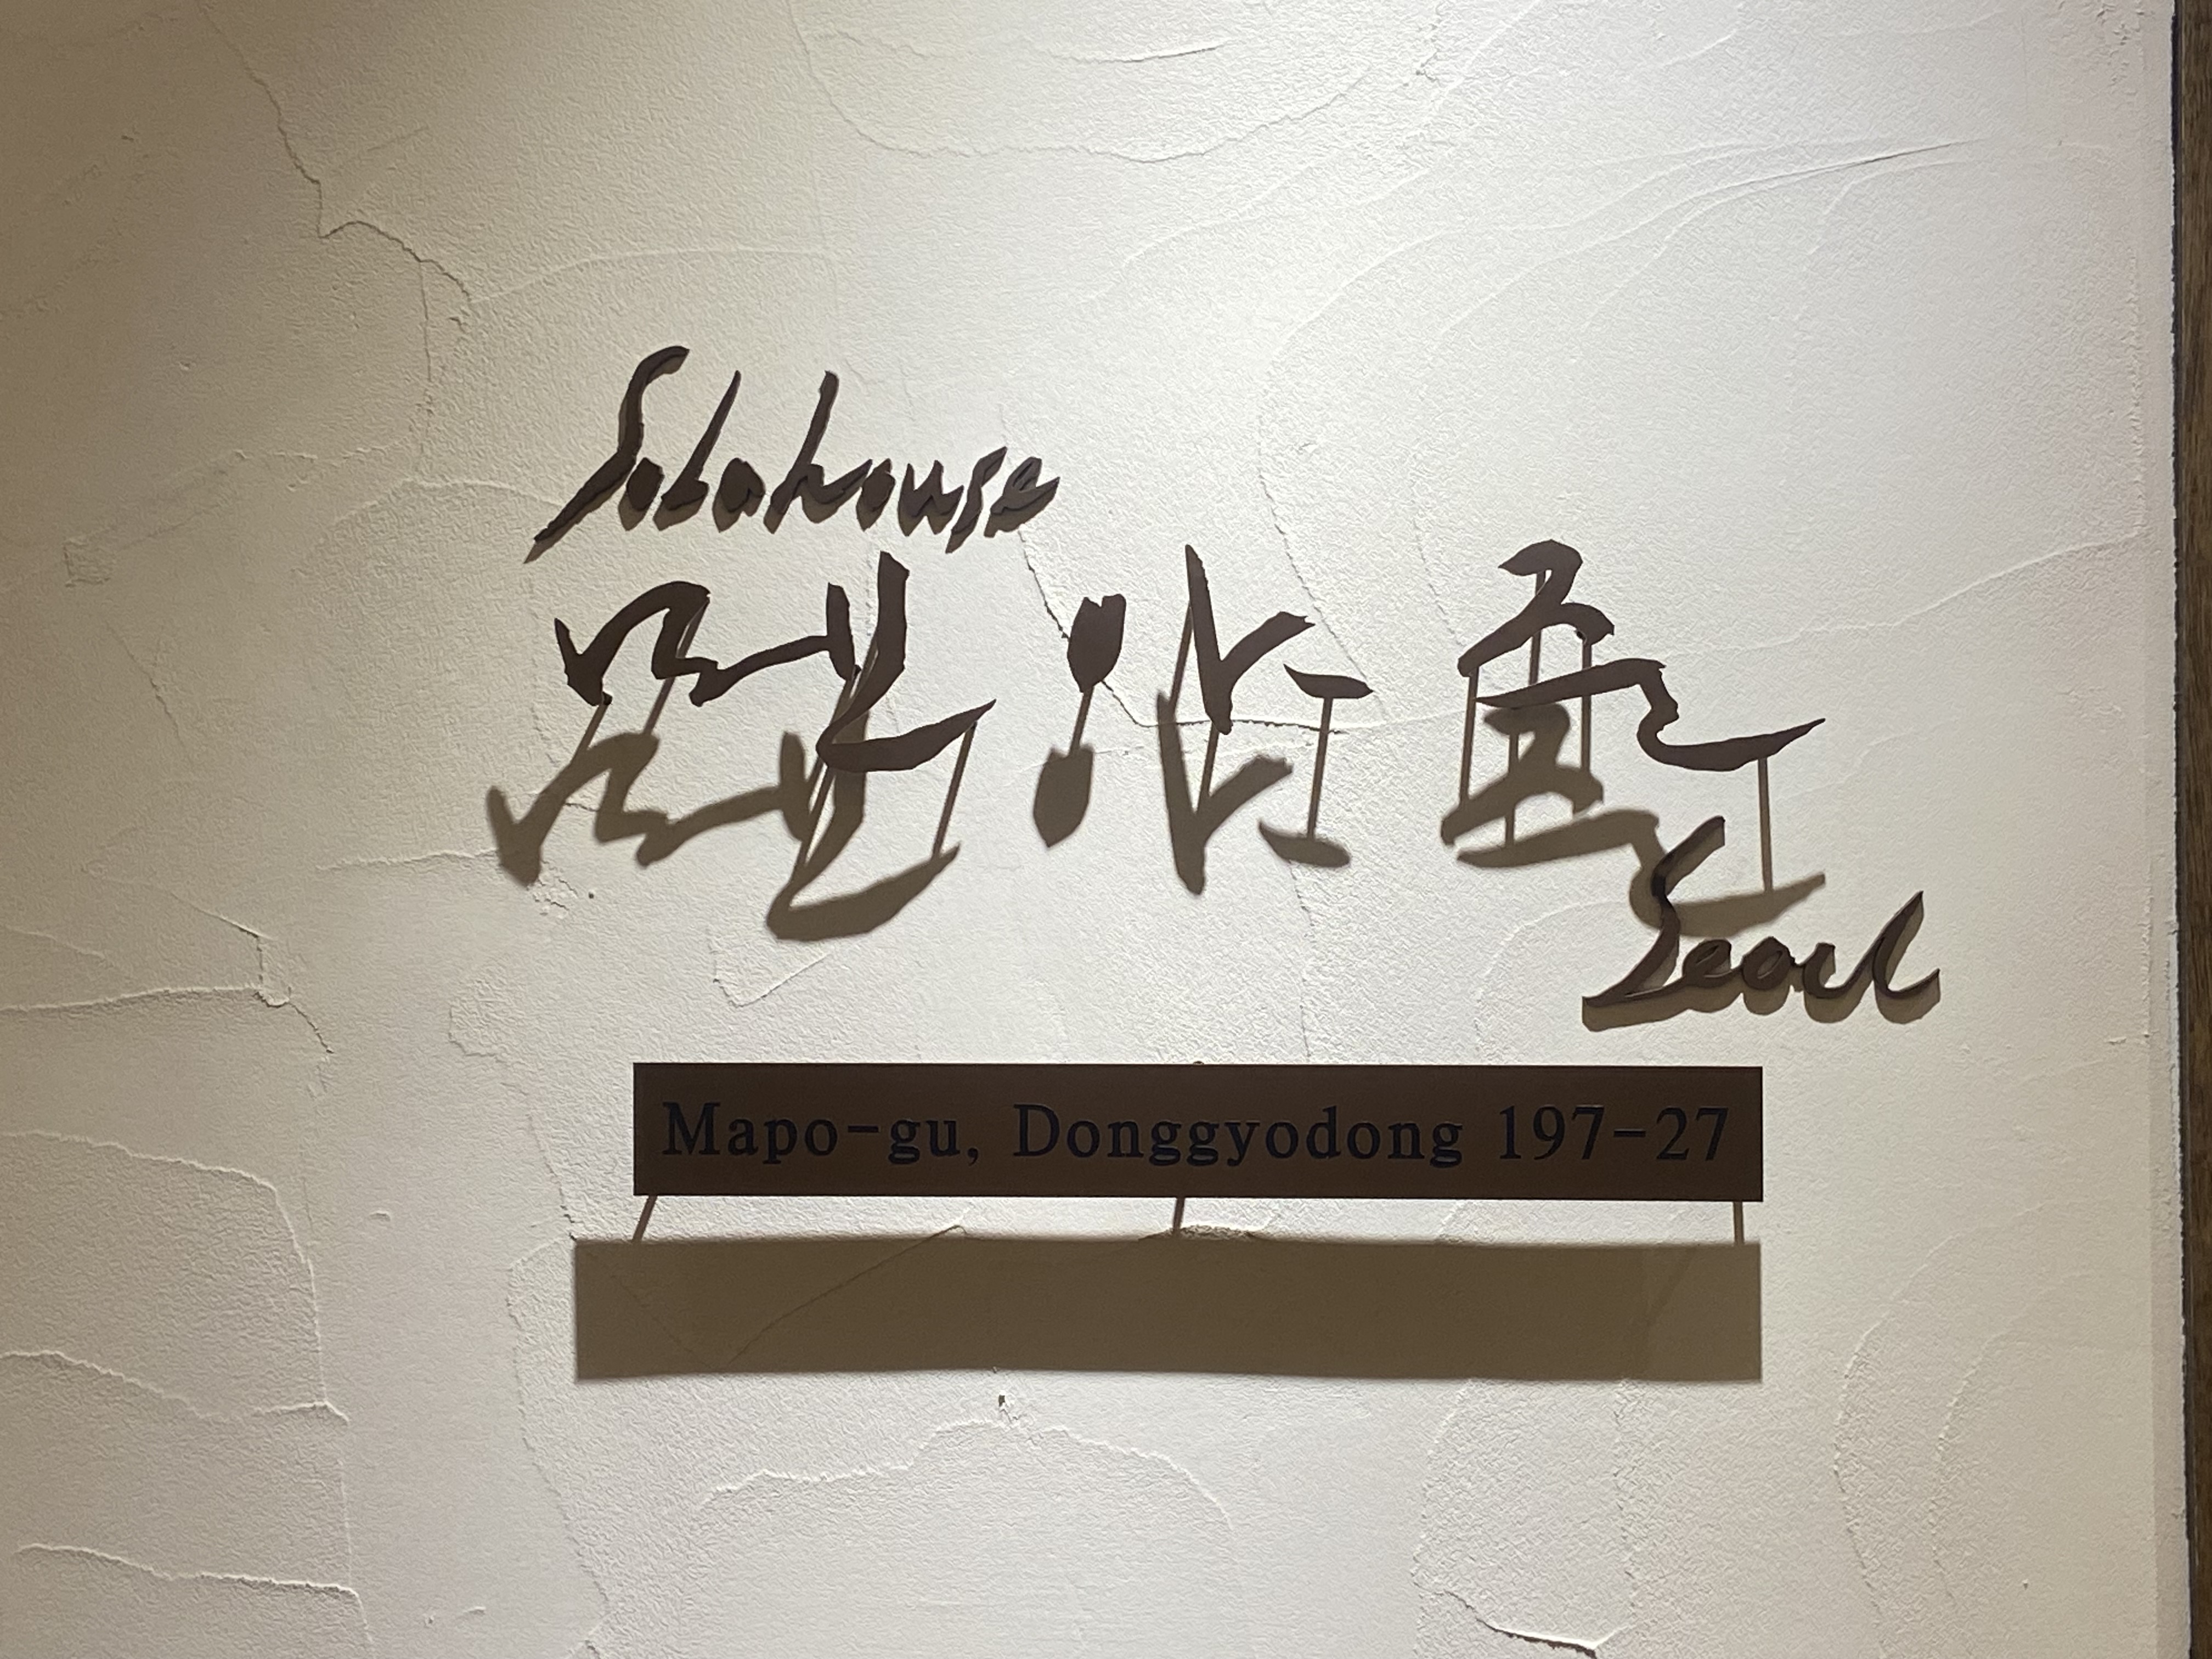 Sobahouse
멘야준
Seoul
Mapo-gu, Donggyodong 197-27